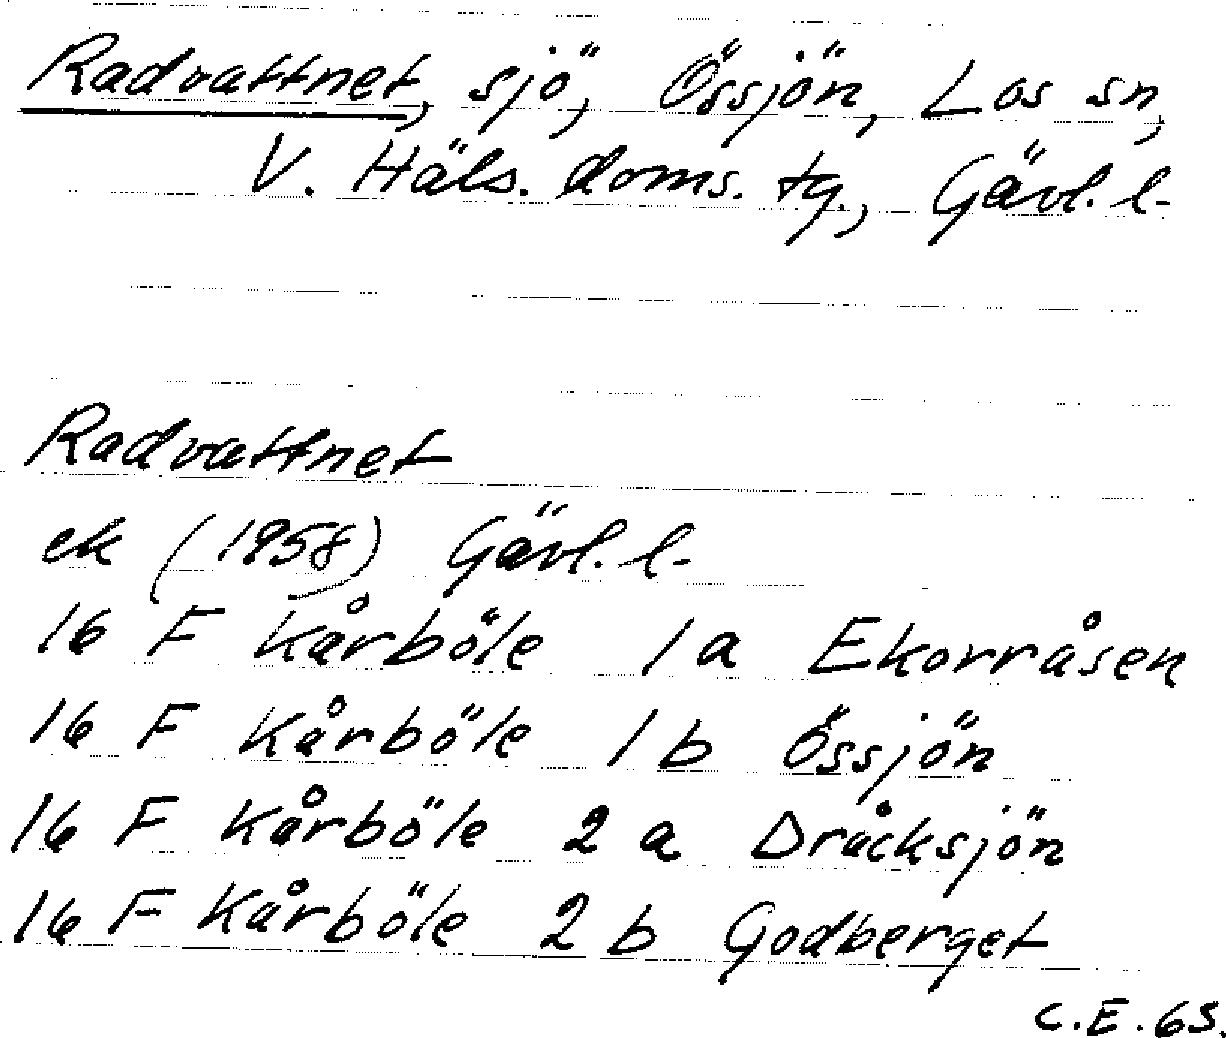 Radvattnet, sjö, Össjön, Los sn,
V. Häls. doms. tg., Gävl. l.
Radvattnet
ek (1958) Gävl. l.
16 F Kårböle 1 a Ekorråsen
16 F Kårböle 1 b Össjön
16 F Kårböle 2 a Dråcksjön
16 F Kårböle 2 b Godberget
C.E. 65.